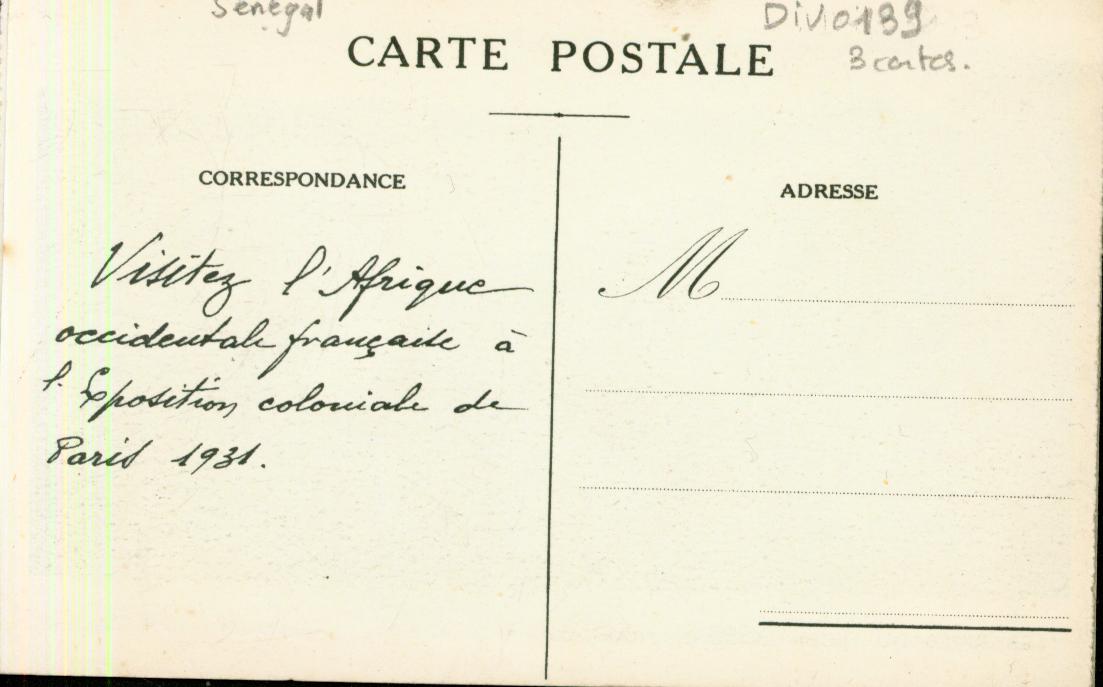 Sénégal
Div0139
3 cartes.
CARTE POSTALE
CORRESPONDANCE
Visitez l'Afrique
occidentale française à
l'Exposition coloniale de
Paris 1931.
ADRESSE
M